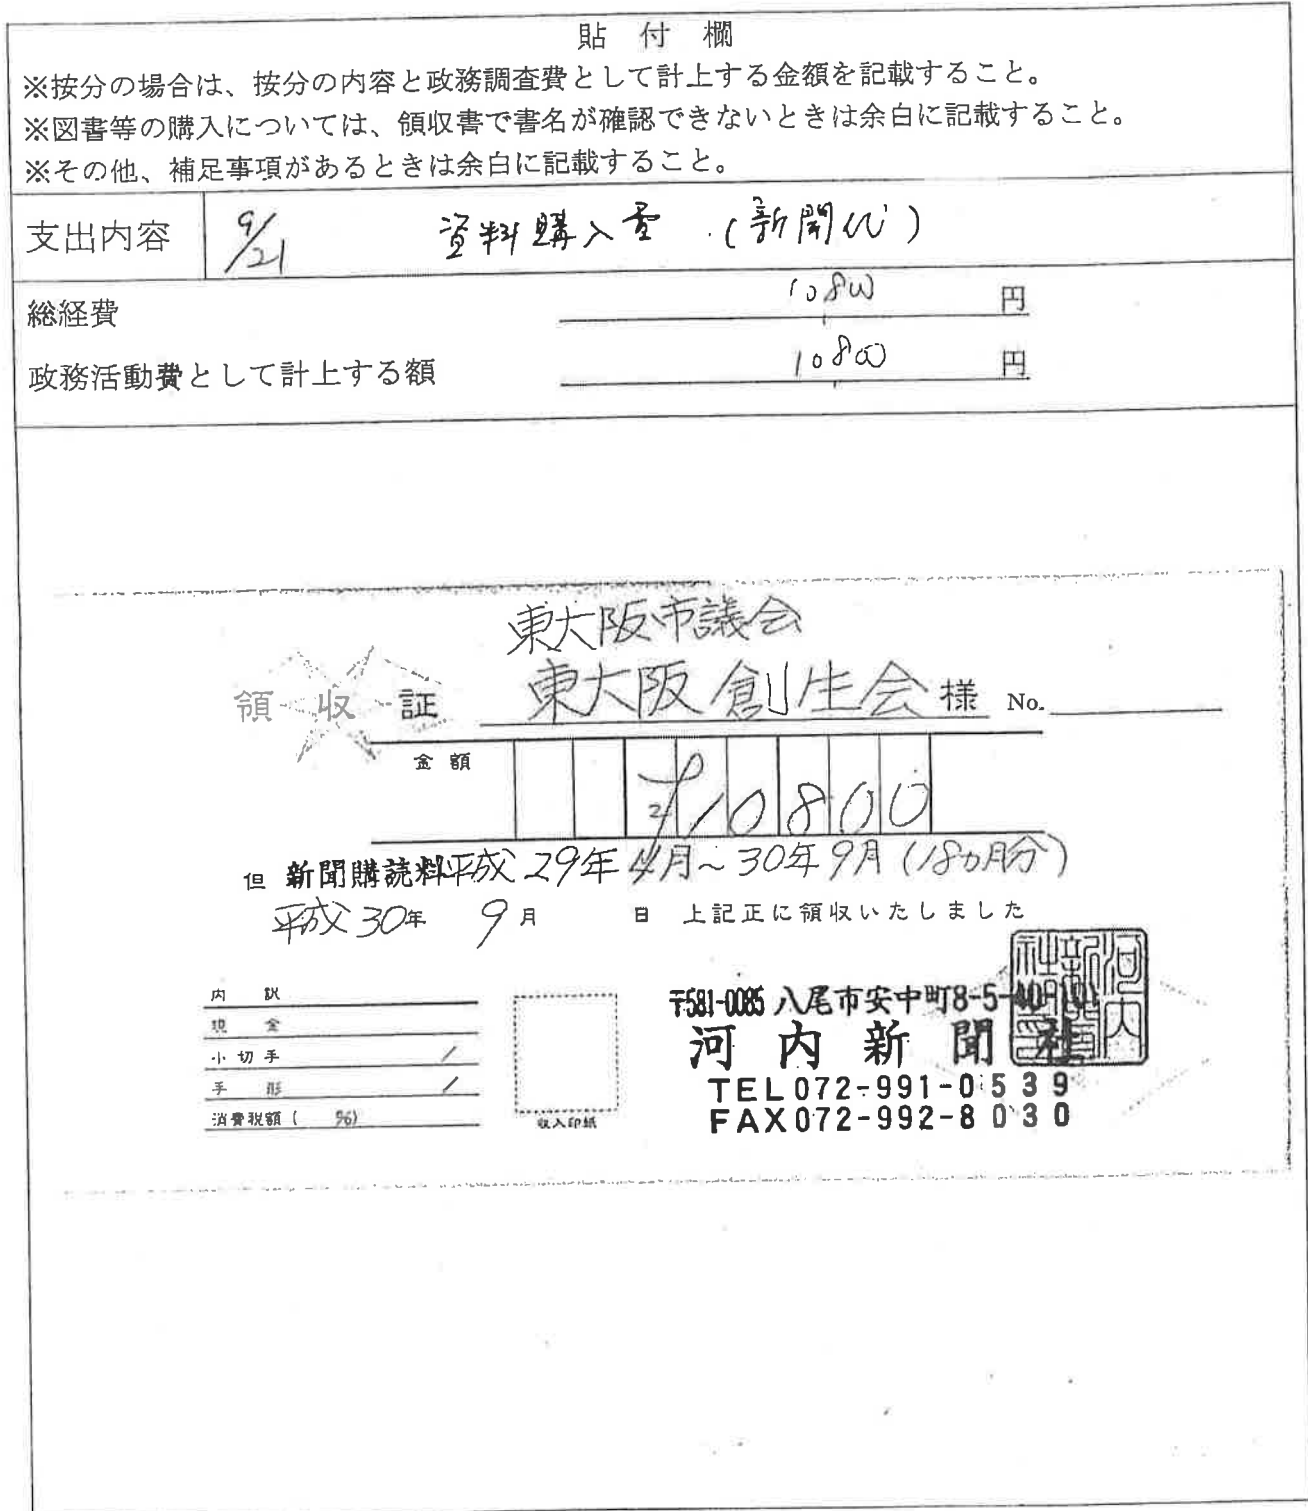 貼付欄
※按分の場合は、按分の内容と政務調査費として計上する金額を記載すること。
※図書等の購入については、領収書で書名が確認できないときは余白に記載すること。
※その他、補足事項があるときは余白に記載すること。
支出内容 9/21 資料購入費 (新聞代)
総経費 10,800 円
政務活動費として計上する額 10,800 円
東大阪市議会
領収証 東大阪創生会様 No.
金額 ¥10800
但 新聞購読料平成29年4月~30年9月(18ヵ月分)
平成30年 9月 日 上記正に領収いたしました
内訳
現金
小切手 /
手形 /
消費税額( %)
収入印紙
〒581-0085 八尾市安中町8-5-40
河内新聞社
TEL072-991-0539
FAX072-992-8030